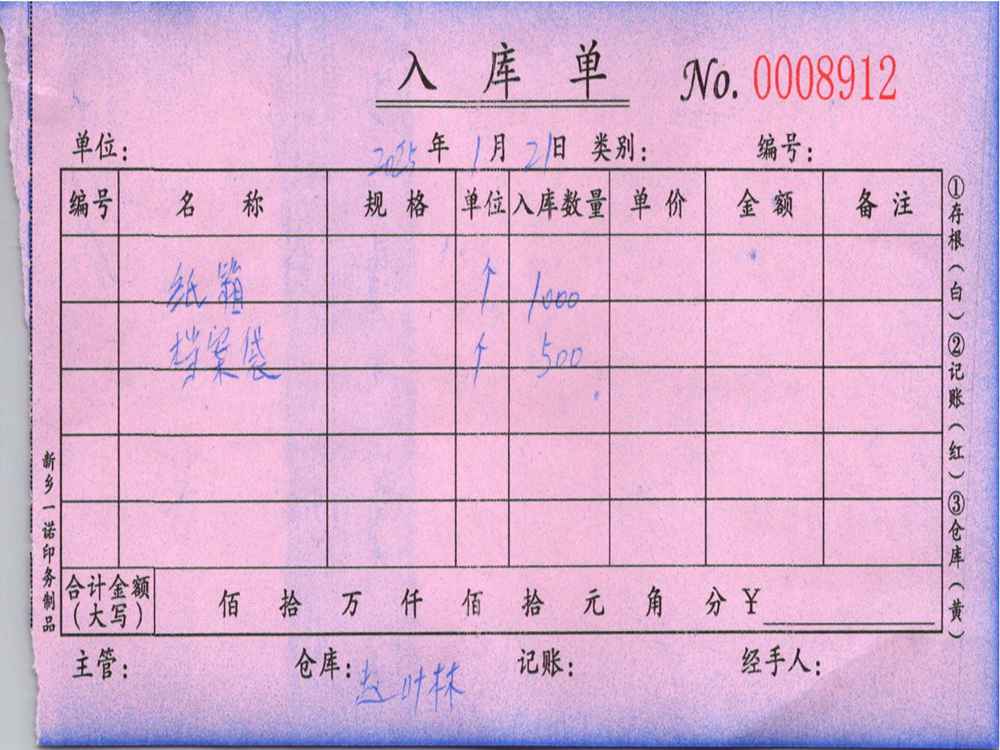 入库单 No. 0008912
单位： 2025年1月21日 类别： 编号：
编号 名称 规格 单位 入库数量 单价 金额 备注
纸箱 个 1000
档案袋 个 500
合计金额（大写） 佰 拾 万 仟 佰 拾 元 角 分 ¥
主管： 仓库：赵叶林 记账： 经手人：
①存根（白）②记账（红）③仓库（黄）
新乡一诺印务制品